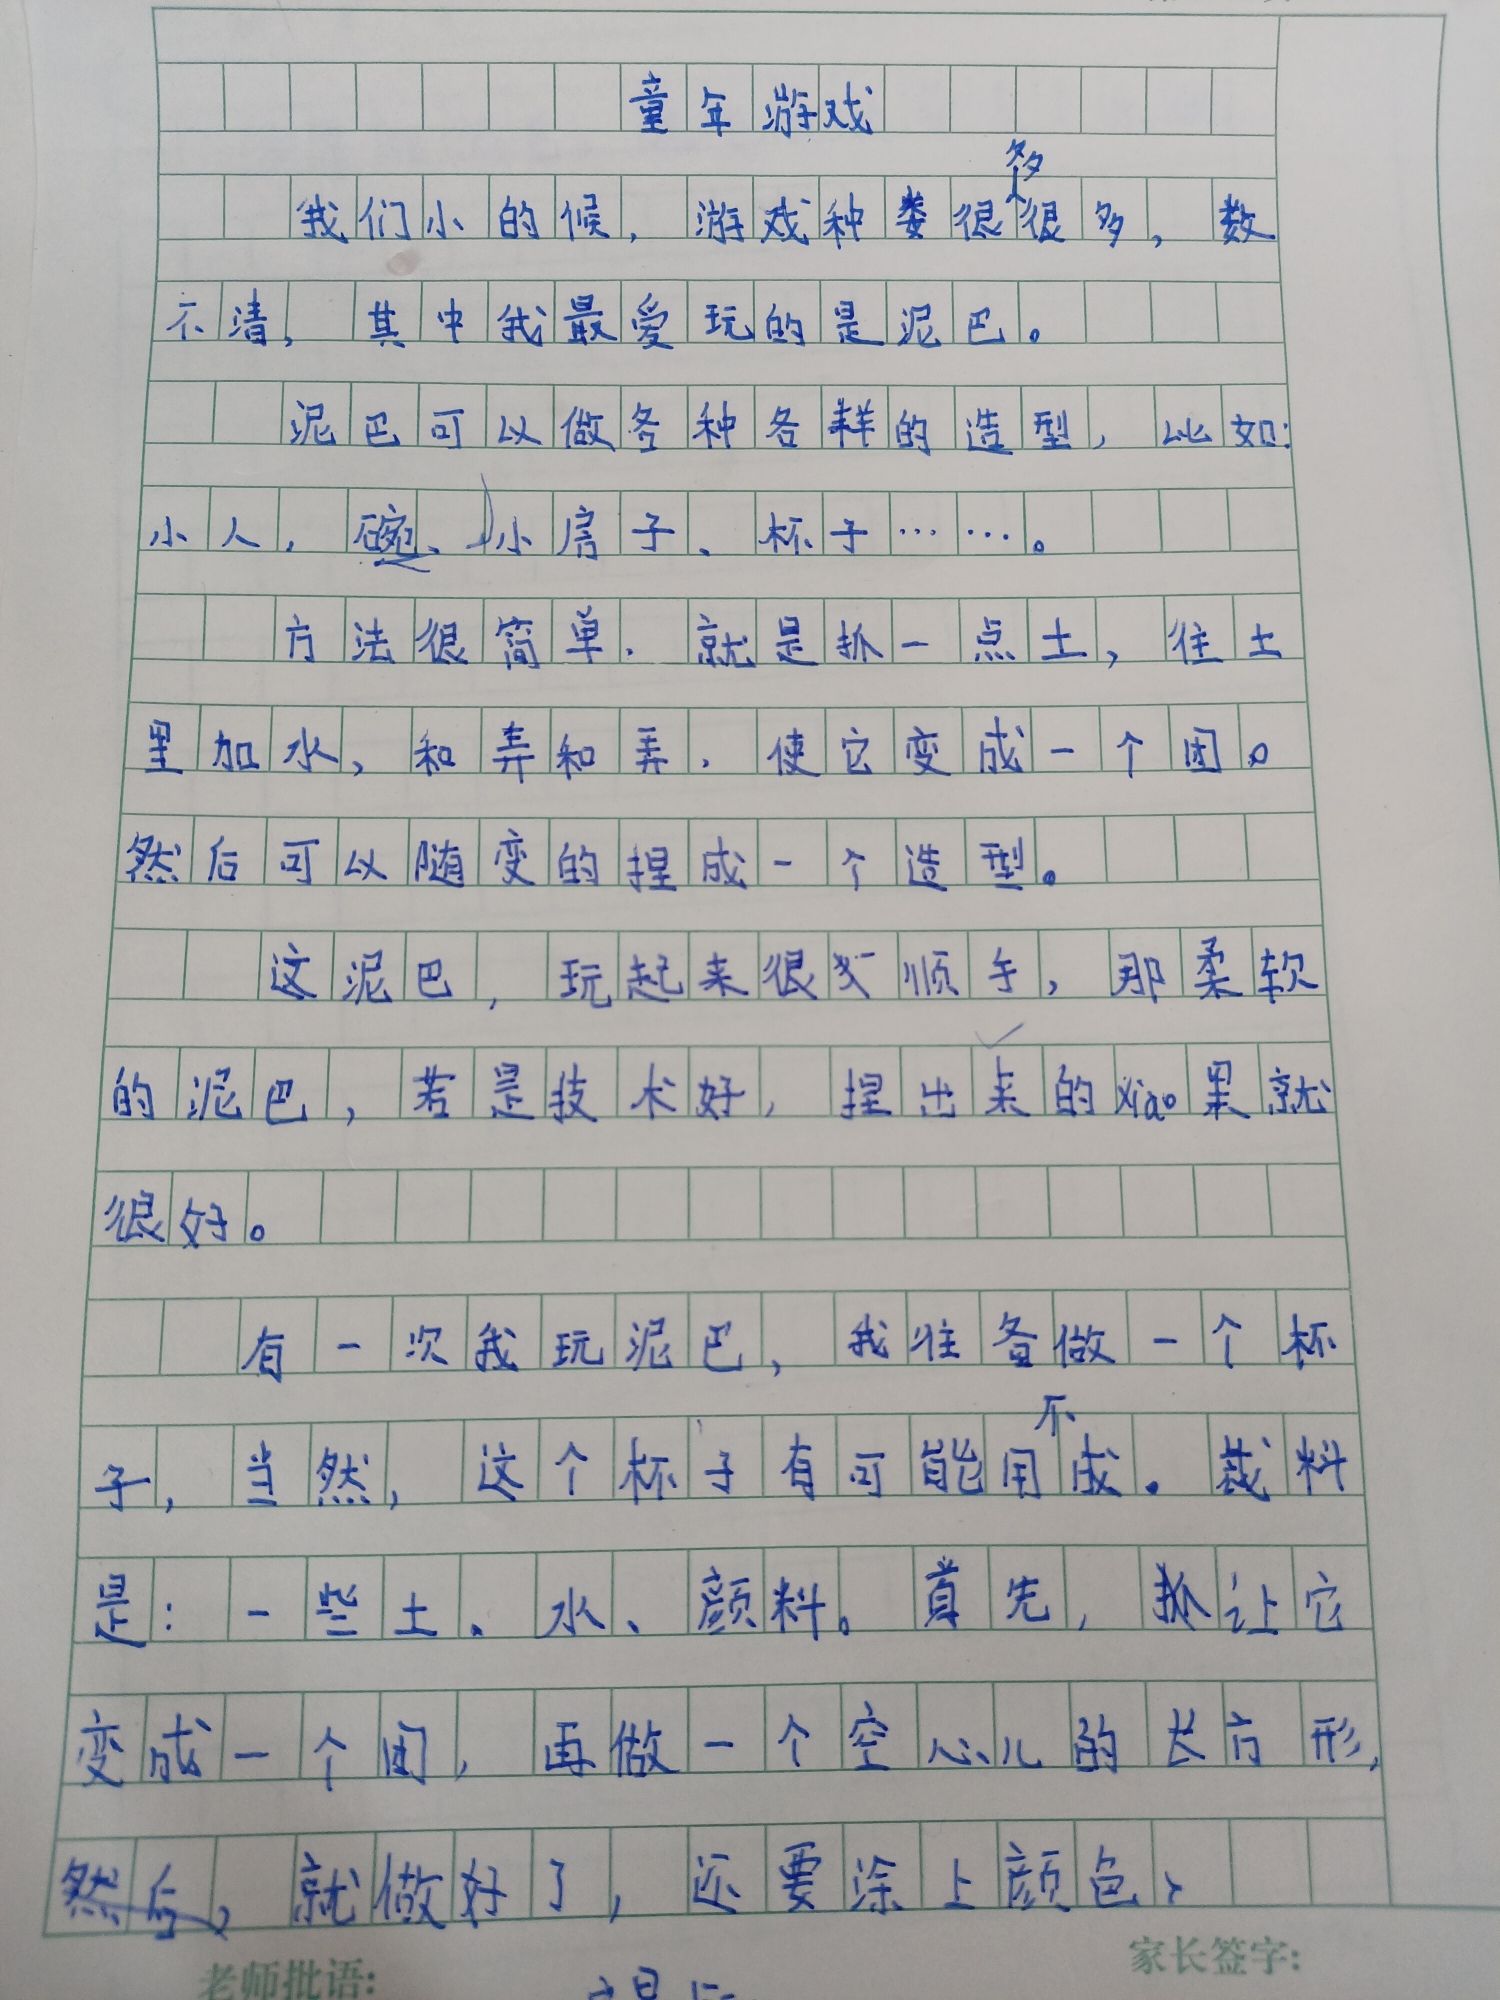 童年游戏
我们小的候，游戏种娄很多很多，数
不清，其中我最爱玩的是泥巴。
泥巴可以做各种各样的造型，比如：
小人，碗、小房子、杯子……。
方法很简单，就是抓一点土，往土
里加水，和弄和弄，使它变成一个团。
然后可以随变的捏成一个造型。
这泥巴，玩起来很顺手，那柔软
的泥巴，若是技术好，捏出来的xiao果就
很好。
有一次我玩泥巴，我准备做一个杯
子，当然，这个杯子有可能用不成。裁料
是：一些土、水、颜料。首先，抓让它
变成一个团，再做一个空心儿的长方形，
然后，就做好了，还要涂上颜色，
老师批语：
家长签字：